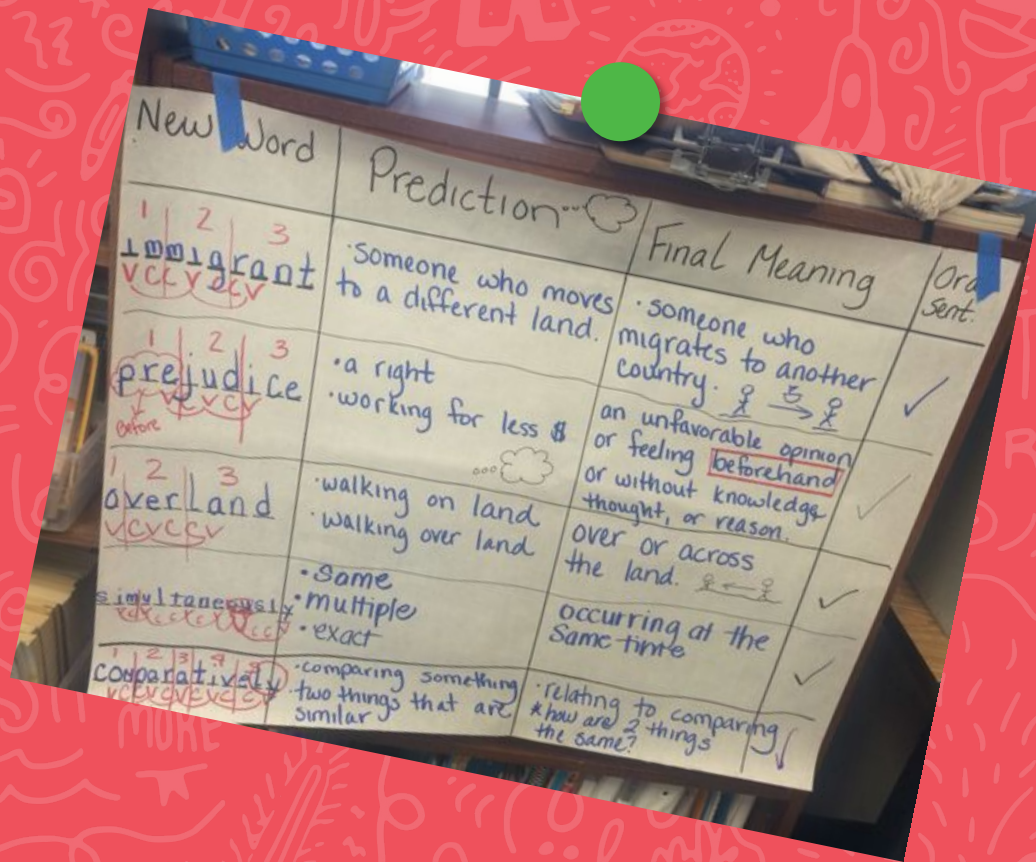 New Word
Prediction...
Final Meaning
Ora
Sent.
1 2 3
immigrant
VCCVCCV
·Someone who moves
to a different land.
·someone who
migrates to another
country.
✓
1 2 3
prejudice
VCVCV
Before
·a right
·working for less $
an unfavorable opinion
or feeling beforehand
or without knowledge
thought, or reason.
✓
1 2 3
overland
VCVCCV
·walking on land
·walking over land
over or across
the land.
✓
simultaneously
·Same
·multiple
·exact
occurring at the
Same time
✓
1 2 3 4 5
comparatively
·comparing something
two things that are
similar
·relating to comparing
*how are 2 things
the same?
✓
MORE